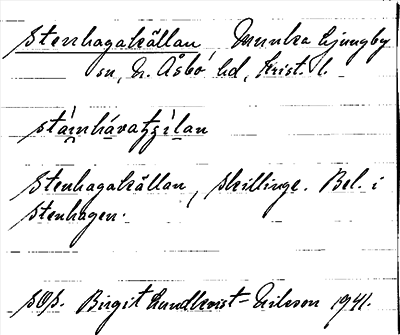 Stenhagakällan Munka Ljungby
sn, N. Åsbo hd, Krist. l.
Stenhagakällan, skillinge. Bel. i
Stenhagen.
Birgit Lundkvist-Nilsson 1941.